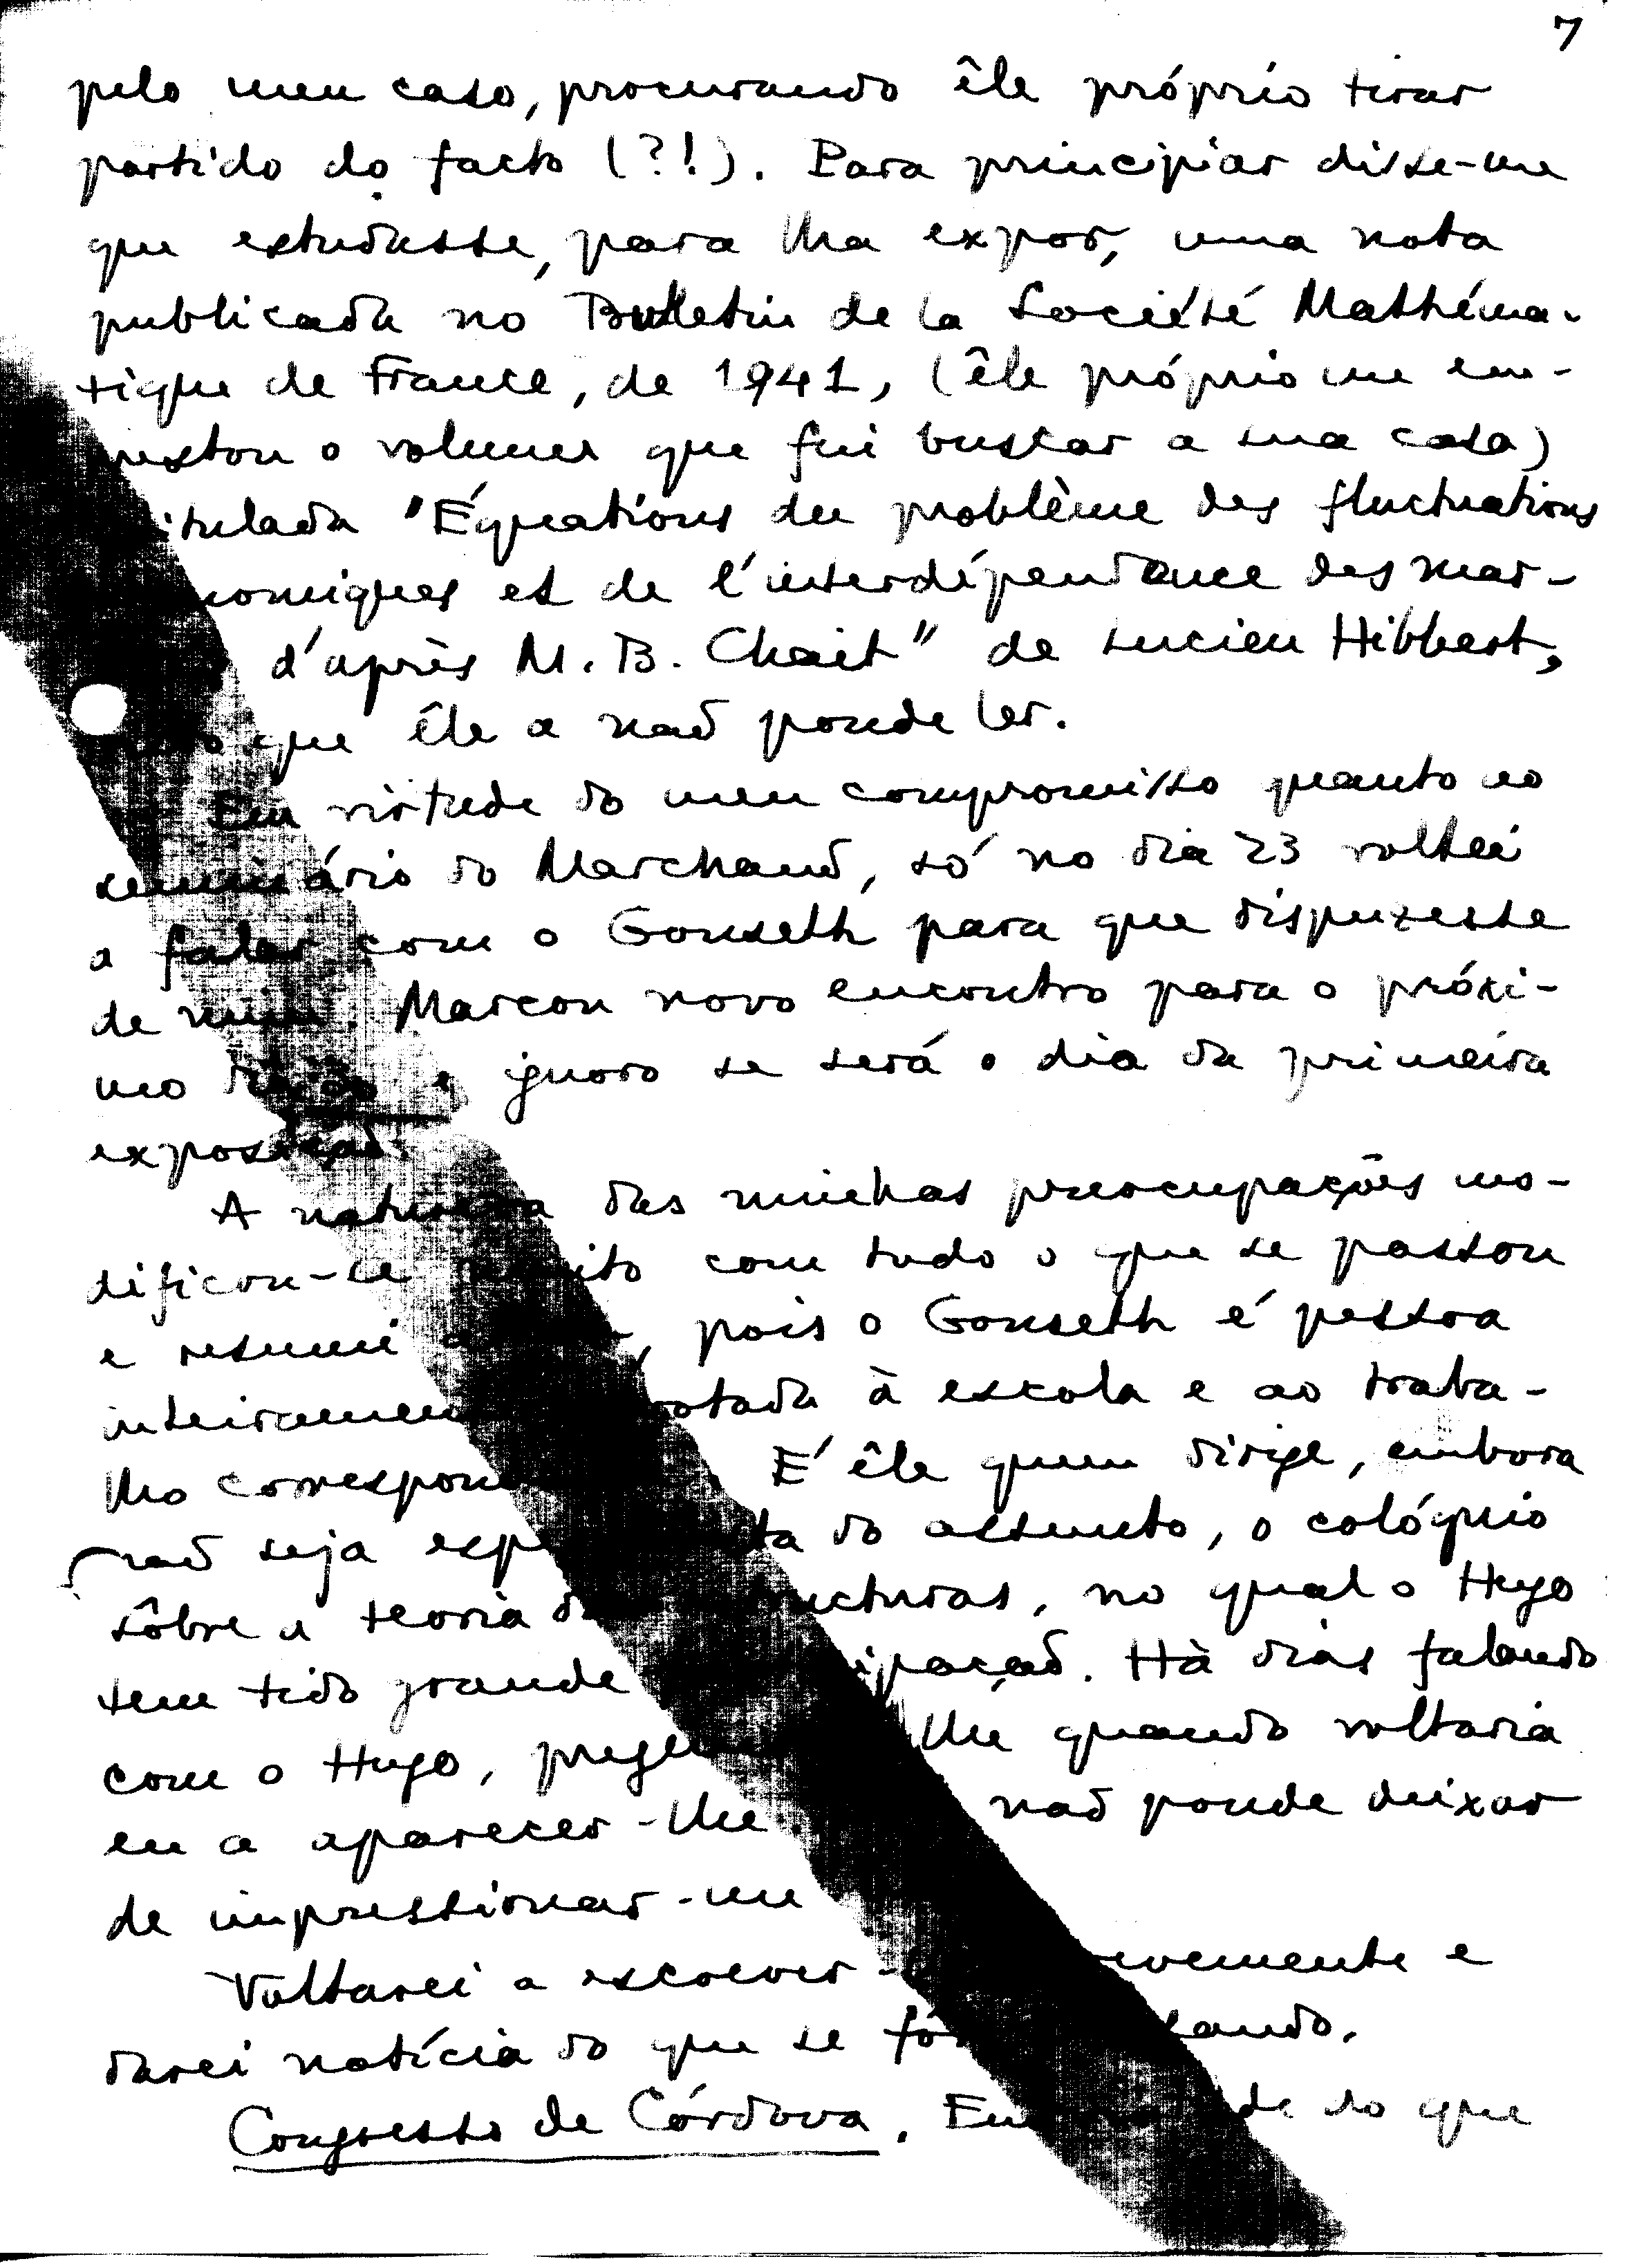 7
pelo meu caso, procurando êle próprio tirar
partido do facto (?!). Para principiar disse-me
que estudasse, para lha expor, uma nota
publicada no Bulletin de la Société Mathéma-
tique de France, de 1941, (êle próprio me em-
prestou o volume que fui buscar a sua casa)
itulada "Équations du problème des fluctuations
nomiques et de l'interdépendance des mar-
d'après M. B. Chait" de Lucien Hibbert,
que êle a não poude ler.
Em virtude do meu compromisso quanto ao
seminário do Marchand, só no dia 23 voltei
a falar com o Gonseth para que dispuzesse
de mim. Marcou novo encontro para o próxi-
mo e ignoro se será o dia da primeira
exposição.
A natureza das minhas preocupações mo-
dificou-se muito com tudo o que se passou
e resumi , pois o Gonseth é pessoa
inteiramen otada à escola e ao traba-
lho correspon É êle quem dirige, embora
não seja espe ta do assunto, o colóquio
sôbre a teoria d ucturas, no qual o Hugo
tem tido grande ipação. Hà dias falando
com o Hugo, pregu lhe quando voltaria
eu a aparecer-lhe não poude deixar
de impressionar-me
Voltarei a escrever- evemente e
darei notícia do que se fô sando.
Congresso de Córdova. Em de do que